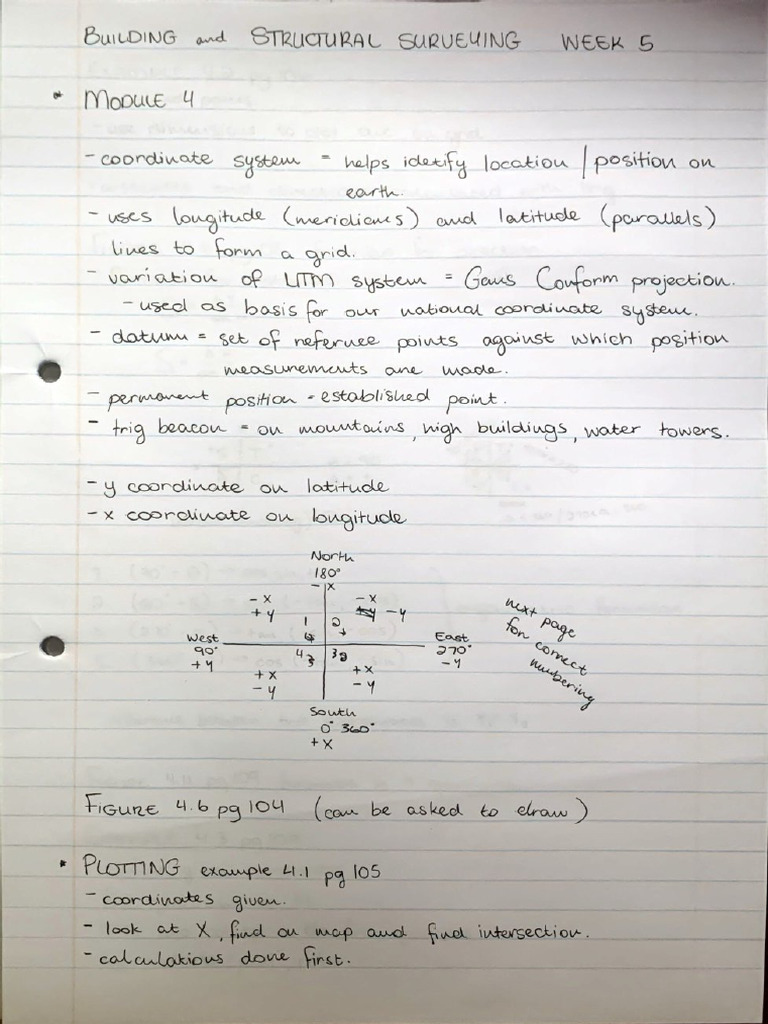 BUILDING and STRUCTURAL SURVEYING WEEK 5
* MODULE 4
- coordinate system = helps idetify location / position on
earth.
- uses longitude (meridianes) and latitude (parallels)
lines to form a grid.
- variation of UTM system = Gaus Conform projection.
- used as basis for our national coordinate system.
- datum = set of refernee points against which position
measurements are made.
- permanent position = established point.
- trig beacon = on mountains, high buildings, water towers.
- y coordinate on latitude
- x coordinate on longitude
North
180°
- x
- x - x
+ y - y
1 2
West East
90° 270°
+ y - y
4 3
+ x + x
- y - y
South
0° 360°
+ x
next page
for correct
numbering
FIGURE 4.6 pg 104 (can be asked to draw)
* PLOTTING example 4.1 pg 105
- coordinates given.
- look at X, find on map and find intersection.
- calculations done first.